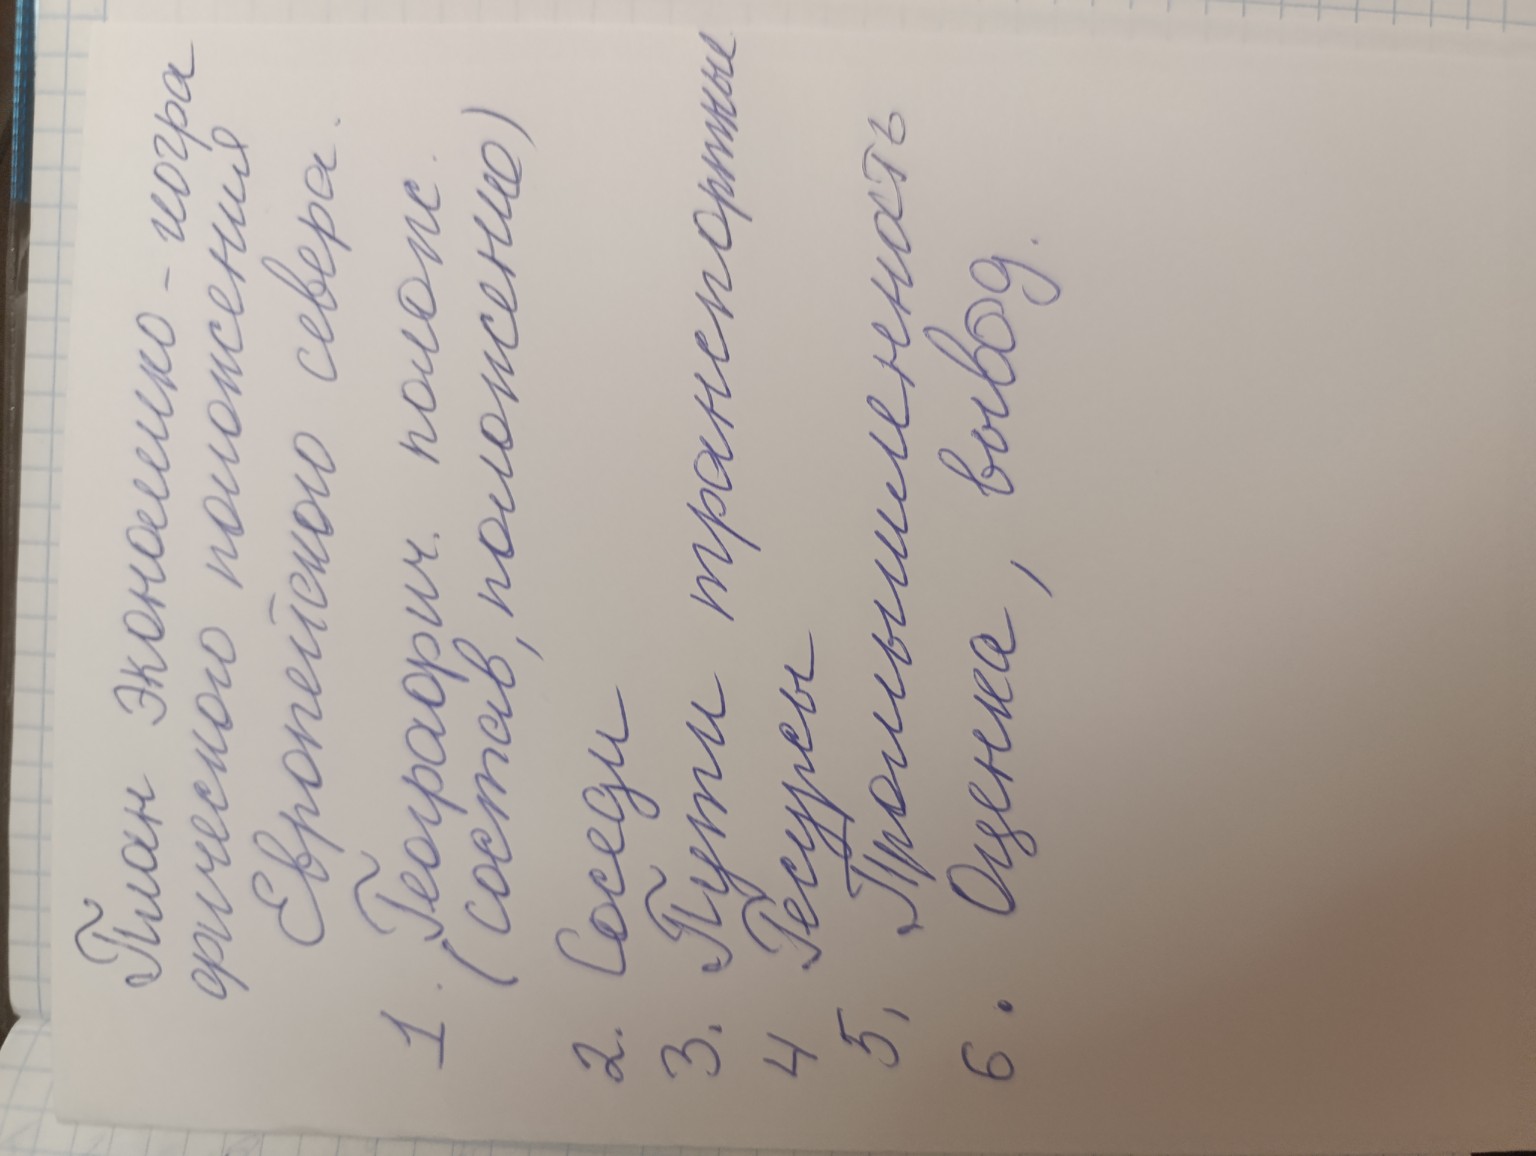 План Экономико-геогра
фического положения
Европейского севера.
1. Географич. полож.
(состав, положение)
2. Соседи
3. Пути транспортные
4 Ресурсы
5, Промышленность
6. Оценка, вывод.